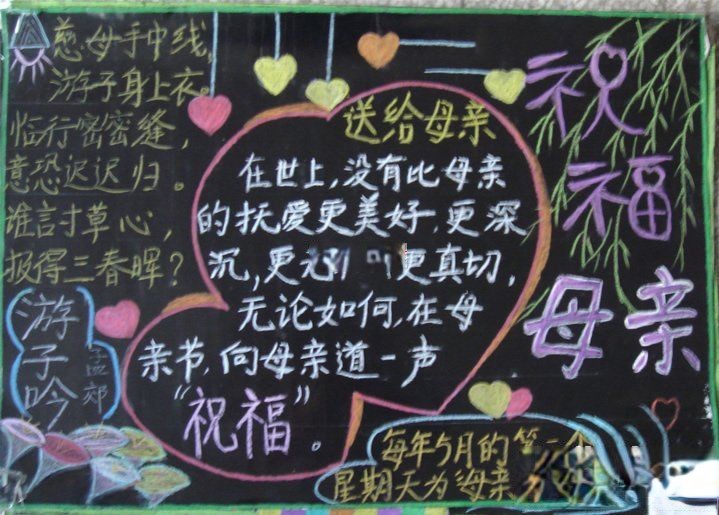 慈母手中线,
游子身上衣。
临行密密缝,
意恐迟迟归。
谁言寸草心,
报得三春晖?
游子吟
孟郊
送给母亲
在世上,没有比母亲
的抚爱更美好,更深
沉,更无 更真切,
无论如何,在母
亲节,向母亲道一声
“祝福”。
祝福
母亲
每年5月的第一个
星期天为母亲